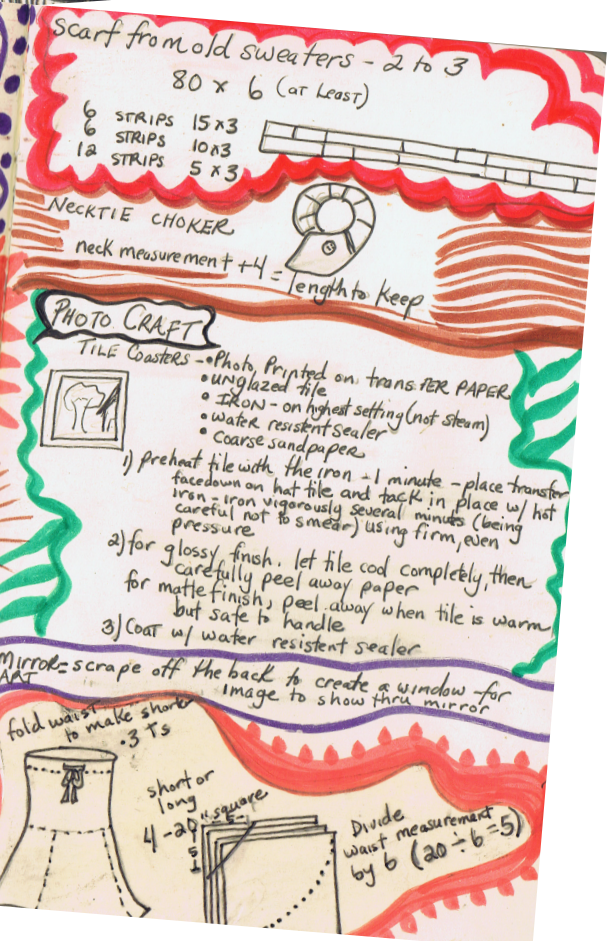 scarf from old sweaters - 2 to 3
80 x 6 (at Least)
6 STRIPS 15x3
6 STRIPS 10x3
12 STRIPS 5x3
NECKTIE CHOKER
neck measurement +4 = length to keep
PHOTO CRAFT
TILE COASTERS - • Photo, Printed on transFER PAPER
• UNglazed tile
• IRON - on highest setting (not steam)
• water resistent sealer
• Coarse sandpaper
1) preheat tile with the iron - 1 minute - place transfer
facedown on hot tile and tack in place w/ hot
iron - iron vigorously several minutes (being
careful not to smear) using firm, even
pressure
2) for glossy finish, let tile cool completely, then
carefully peel away paper
for matte finish, peel away when tile is warm
but safe to handle
3) Coat w/ water resistent sealer
Mirror = scrape off the back to create a window - for
ART image to show thru mirror
fold waist to make short
• 3 Ts
short or
long
4 - 20" square
5
5
1
Divide
waist measurement
by 6 (20 ÷ 6 = 5)